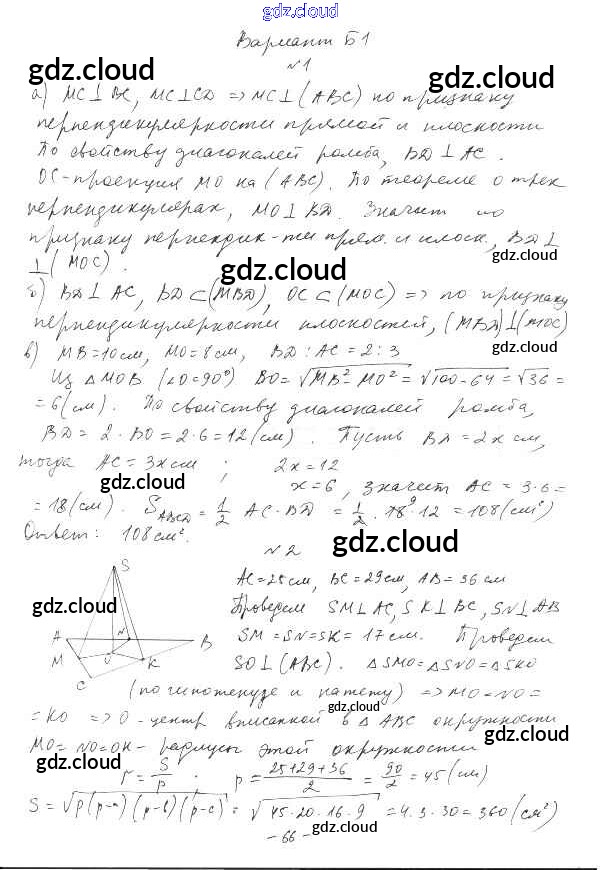 gdz.cloud
Вариант Б1
gdz.cloud gdz.cloud
№1
а) MC⊥BC, MC⊥CD ⇒ MC⊥(ABC) по признаку
перпендикулярности прямой и плоскости
gdz.cloud gdz.cloud
По свойству диагоналей ромба, BD⊥AC.
OC-проекция MO на (ABC). По теореме о трех
перпендикулярах, MO⊥BD. Значит по
признаку перпендик-ти прям. и плоск., BD⊥
gdz.cloud
⊥(MOC).
gdz.cloud
б) BD⊥AC, BD⊂(MBD), OC⊂(MOC) ⇒ по признаку
перпендикулярности плоскостей, (MBD)⊥(MOC)
gdz.cloud
в) MB=10см, MO=8см, BD:AC=2:3
Из △MOB (∠O=90°) BO=√MB²-MO²=√100-64=√36=
=6(см). По свойству диагоналей ромба,
BD=2·BO=2·6=12(см). Пусть BD=2x см,
gdz.cloud
тогда AC=3x см; 2x=12
x=6, значит AC=3·6=
gdz.cloud
=18(см). S ABCD = 1/2 AC·BD = 1/2·18·12=108(см²)
9
Ответ: 108см².
gdz.cloud
№2
S
AC=25см, BC=29см, AB=36см
gdz.cloud
Проведем SM⊥AC, SK⊥BC, SN⊥AB
gdz.cloud
A N B
SM=SN=SK=17см. Проведем
M O K
SO⊥(ABC). △SMO=△SNO=△SKO
C
(по гипотенузе и катету) ⇒ MO=NO=
gdz.cloud
=KO ⇒ O-центр вписанной в △ABC окружности
MO=NO=OK-радиусы этой окружности
gdz.cloud gdz.cloud
r=S/p. p=25+29+36/2=90/2=45(см)
S=√p(p-a)(p-b)(p-c)=√45·20·16·9=4·3·30=360(см²)
-66-
gdz.cloud